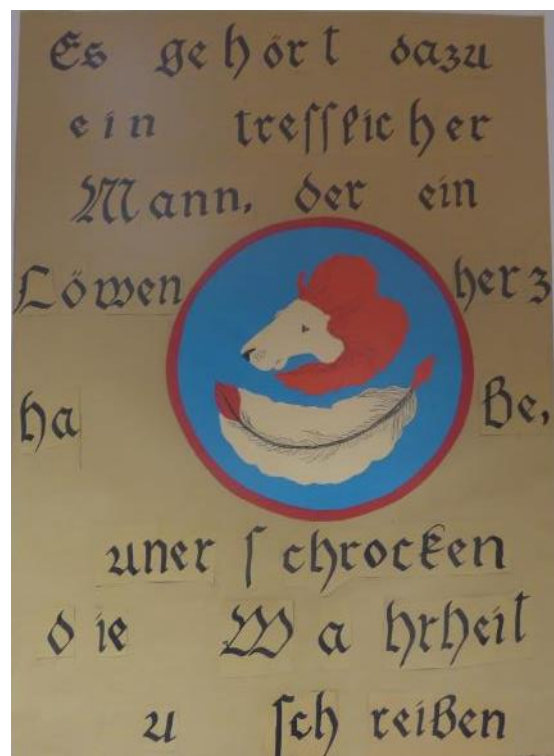 Es gehört dazu
ein trefflicher
Mann, der ein
Löwen herz
ha be,
unerschrocken
die Wahrheit
u schreiben